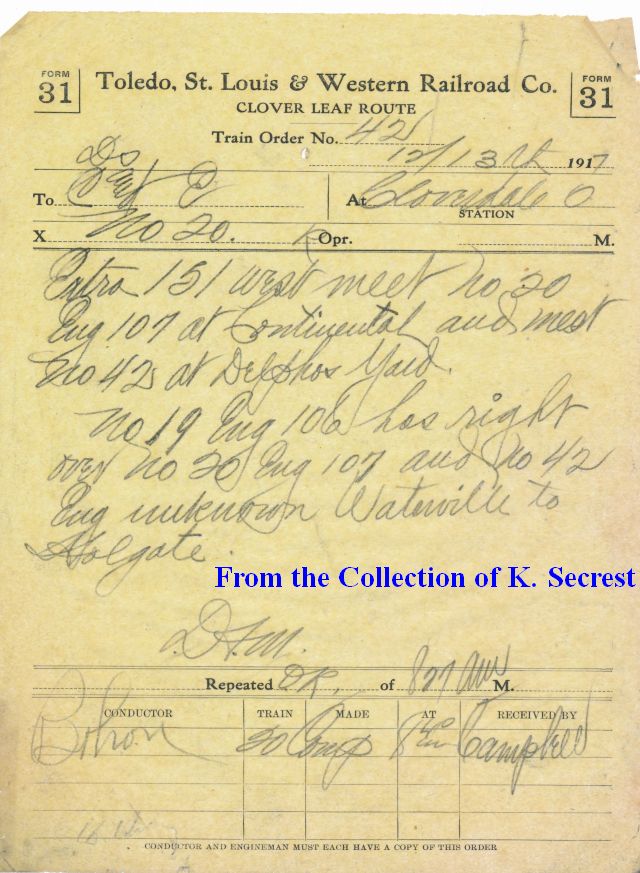 FORM 31 Toledo, St. Louis & Western Railroad Co. FORM 31
CLOVER LEAF ROUTE
Train Order No. 42
12/13th 1917
To C & E At Cloverdale O
STATION
No 20.
X Opr. M.
Extra 151 west meet No 20
Eng 107 at Continental and meet
No 42 at Delphos Yard.
No 19 Eng 106 has right
over No 20 Eng 107 and No 42
Eng unknown Waterville to
Holgate.
From the Collection of K. Secrest
Repeated OK, of 827 AM M.
CONDUCTOR TRAIN MADE AT RECEIVED BY
20 Comp Campbell
CONDUCTOR AND ENGINEMAN MUST EACH HAVE A COPY OF THIS ORDER